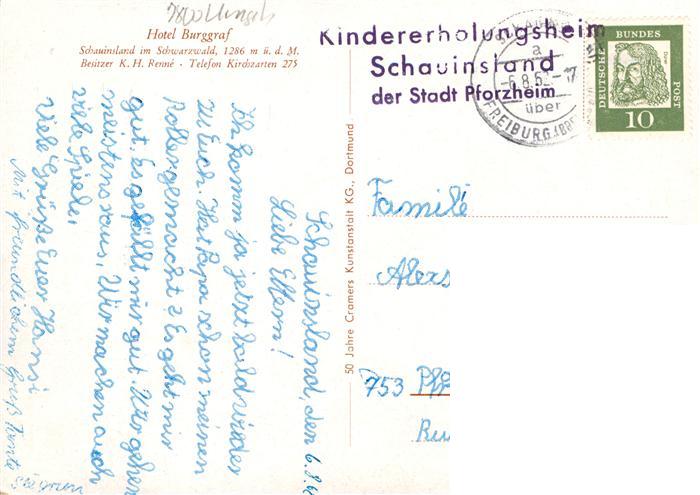 Hotel Burggraf
Schauinsland im Schwarzwald, 1286 m ü. d. M.
Besitzer K. H. Renné - Telefon Kirchzarten 275
Kindererholungsheim
Schauinsland
der Stadt Pforzheim
a
-6.8.6
17
über
FREIBURG
DEUTSCHE BUNDES POST
10
50 Jahre Cramers Kunstanstalt KG., Dortmund
Schauinsland, den 6.8.6
Liebe Eltern!
Ihr komm ja jetzt bald wieder
zu Euch. Hat Papa schon meinen
Roller gemacht? Es geht mir
gut. Es gefällt mir gut. Wir gehen
meistens raus. Wir machen auch
viele Spiele.
Viele Grüße Euer Hansi
Mit freundlichem Gruß Tante
Familie
753